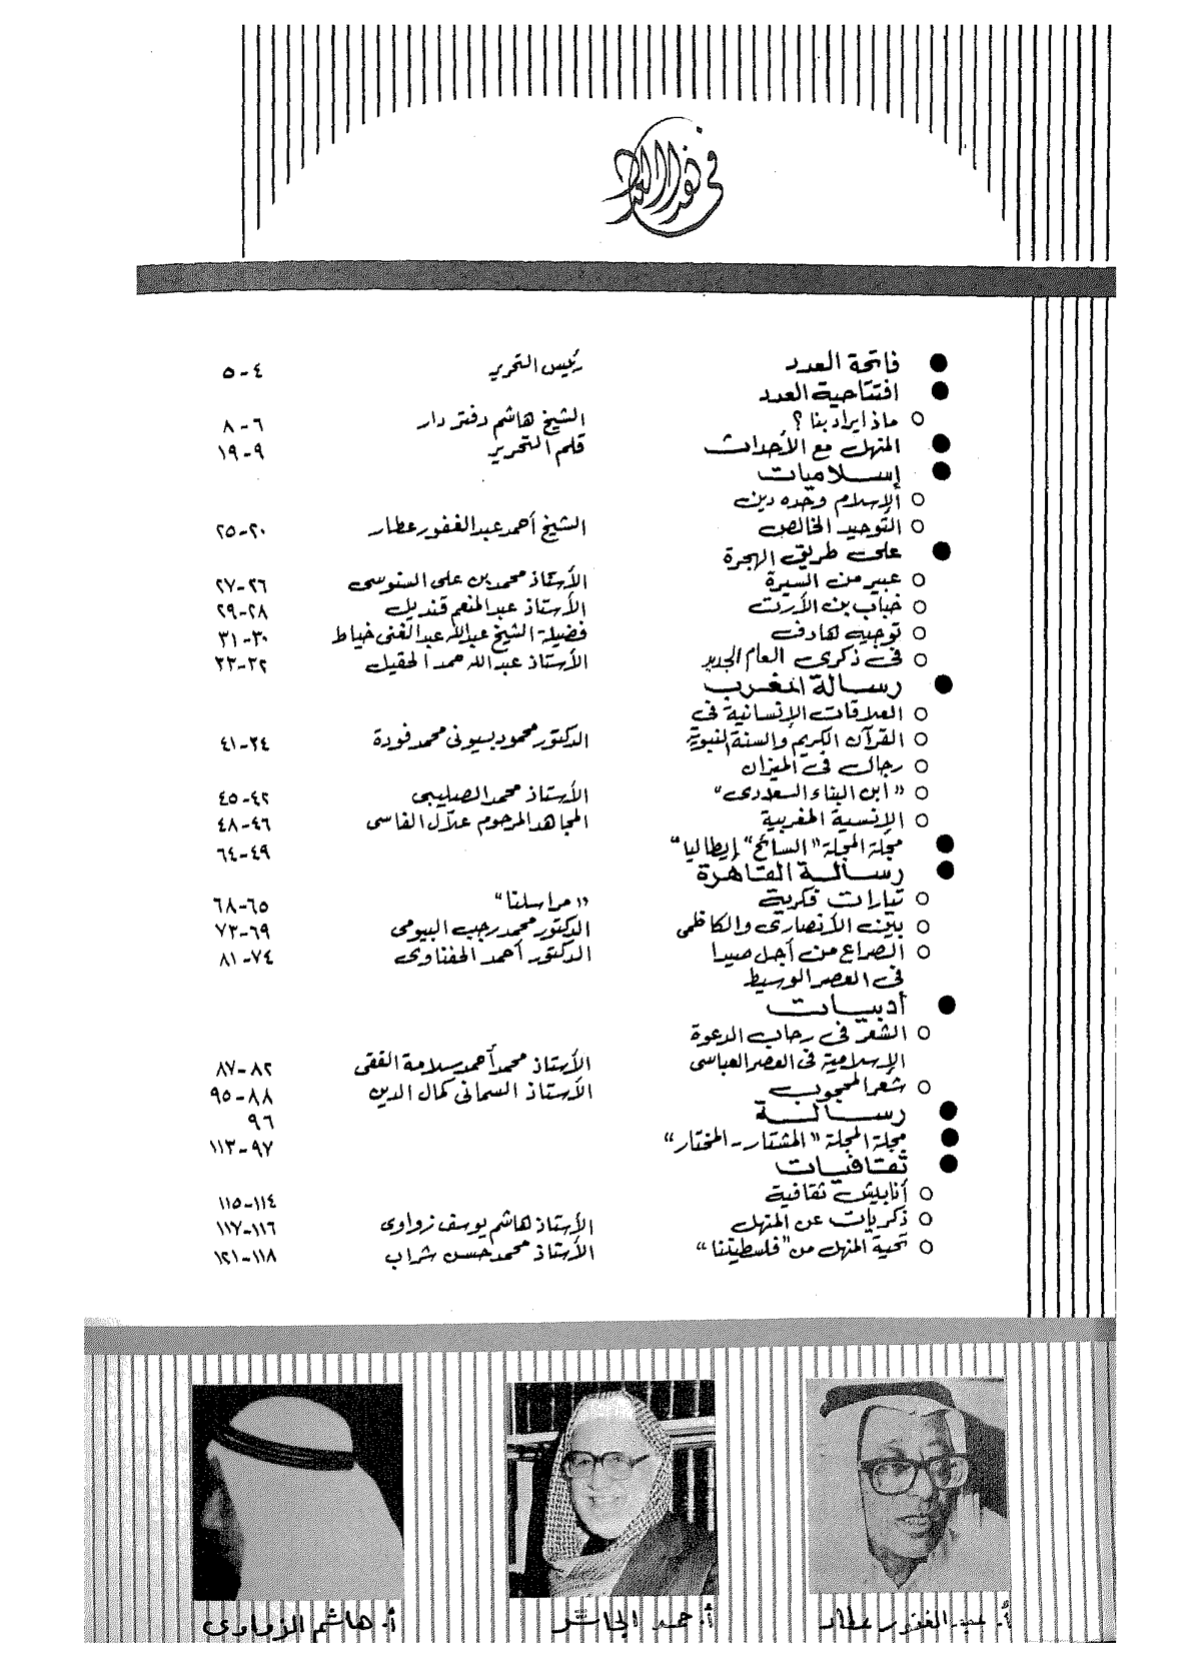 في هذا العدد
● فاتحة العدد رئيس التحرير ٤-٥
● افتتاحية العدد
○ ماذا يراد بنا ؟ الشيخ هاشم دفتر دار ٦-٨
● المنهل مع الأحداث قلم التحرير ٩-١٩
● إسلاميات
○ الإسلام وحده دين
○ التوحيد الخالص الشيخ أحمد عبد الغفور عطار ٢٠-٢٥
● على طريق الهجرة
○ عبير من السيرة الأستاذ محمد بن على السنوسى ٢٦-٢٧
○ خباب بن الأرت الأستاذ عبد المنعم قنديل ٢٨-٢٩
○ توجيه هادف فضيلة الشيخ عبد الله عبد الغنى خياط ٣٠-٣١
○ فى ذكرى العام الجديد الأستاذ عبد الله حمد الحقيل ٣٢-٣٣
● رسالة المغرب
○ العلاقات الإنسانية فى
○ القرآن الكريم والسنة النبوية الدكتور محمود بسيونى محمد فودة ٣٤-٤١
○ رجال فى الميزان
○ "ابن البناء السعادى" الأستاذ محمد الصليبى ٤٢-٤٥
○ الإنسية المغربية المجاهد المرحوم علال الفاسى ٤٦-٤٨
● مجلة المجلة "السائح" إيطاليا" ٤٩-٦٤
● رسالة القاهرة
○ تيارات فكرية "مراسلنا" ٦٥-٦٨
○ بين الأنصارى والكاظمى الدكتور محمد رجب البيومى ٦٩-٧٣
○ الصراع من أجل صيدا الدكتور أحمد الحفناوى ٧٤-٨١
فى العصر الوسيط
● أدبيات
○ الشعر فى رحاب الدعوة
الإسلامية فى العصر العباسى الأستاذ محمد أحمد سلامة الفقى ٨٢-٨٧
○ شعر المحجوب الأستاذ السمانى كمال الدين ٨٨-٩٥
● رسالة ٩٦
● مجلة المجلة "المشتار-المختار" ٩٧-١١٣
● ثقافيات
○ أنابيش ثقافية ١١٤-١١٥
○ ذكريات عن المنهل الأستاذ هاشم يوسف زواوى ١١٦-١١٧
○ تحية المنهل من "فلسطيننا" الأستاذ محمد حسن شراب ١١٨-١٢١
أ. عبد الغفور عطار
أ. حمد الجاسر
أ. هاشم الزواوى